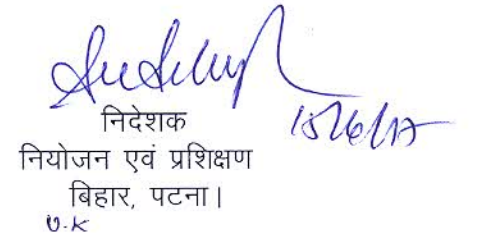 15/6/17
निदेशक
नियोजन एवं प्रशिक्षण
बिहार, पटना।
U.K